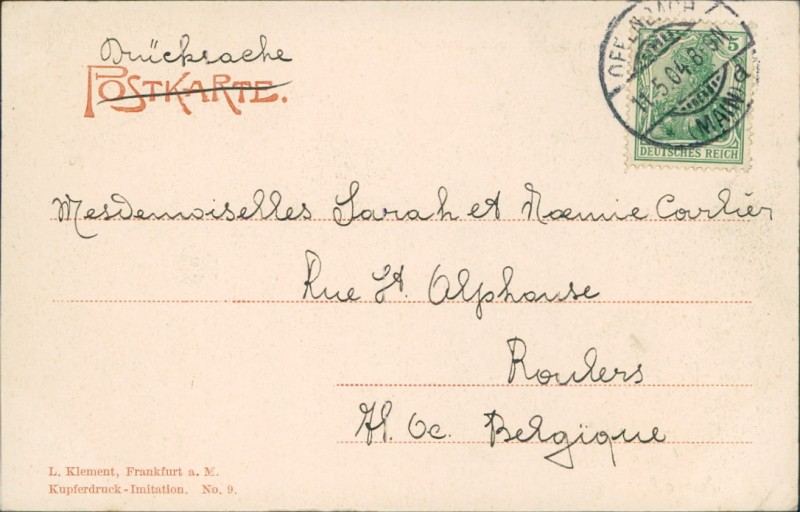 Drücksache
POSTKARTE.
OFFENBACH
11.5.04.8-9N
(MAIN) d
5
DEUTSCHES REICH
Mesdemoiselles Sarah et Noemie Carlier
Rue St. Alphonse
Roulers
Fl. Oc. Belgique
L. Klement, Frankfurt a. M.
Kupferdruck-Imitation. No. 9.